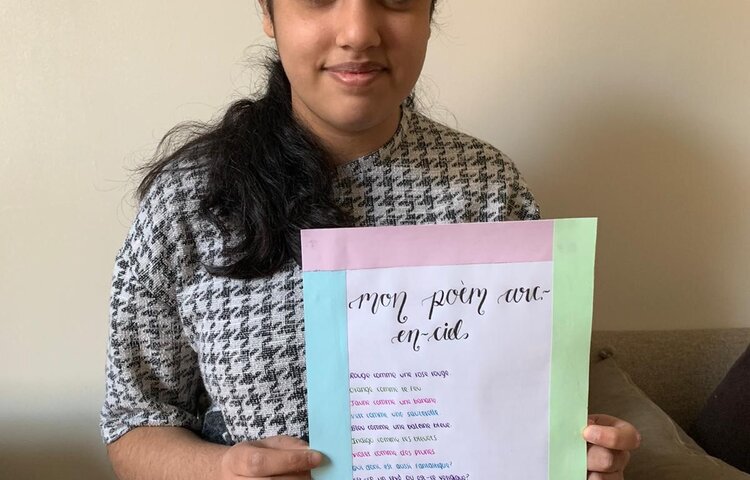 mon poèm arc-
en-ciel
Rouge comme une rose rouge
Orange comme le feu
Jaune comme une banane
Vert comme une sauterelle
Bleu comme une baleine bleue
Indigo comme les bleuets
Violet comme des prunes
Qui donc est aussi fantastique?